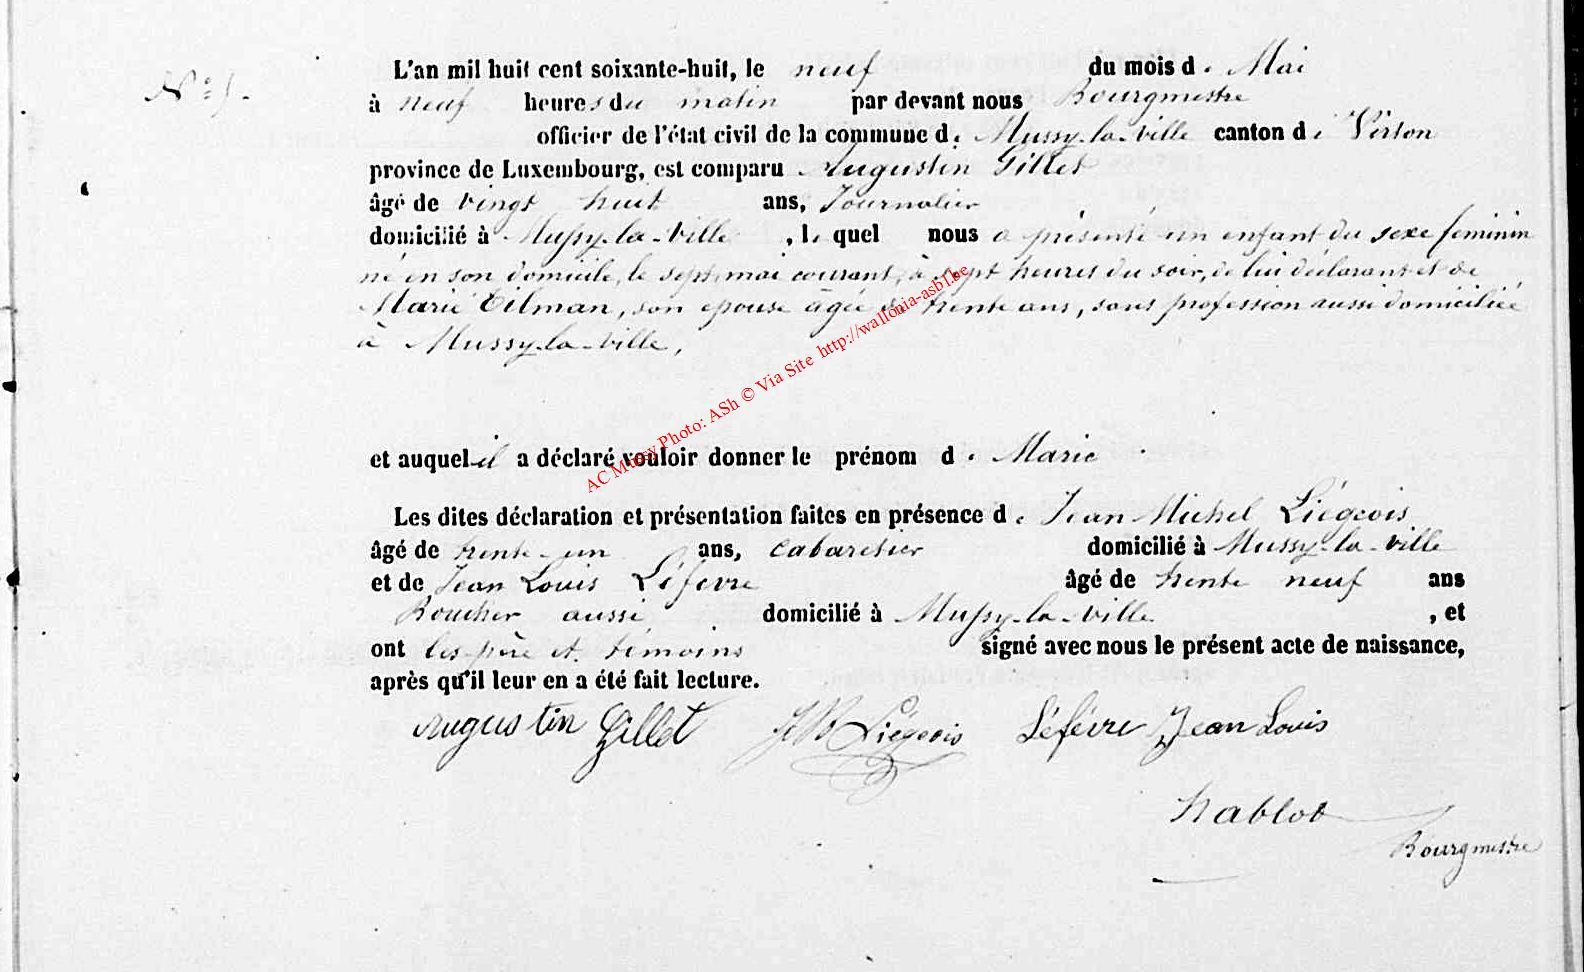 N° 5.
L'an mil huit cent soixante-huit, le neuf du mois de Mai
à neuf heures du matin par devant nous Bourgmestre
officier de l'état civil de la commune de Mussy-la-ville canton de Virton
province de Luxembourg, est comparu Augustin Gillet
âgé de vingt huit ans, Journalier
domicilié à Mussy-la-Ville, le quel nous a présenté un enfant du sexe feminin
né en son domicile, le sept mai courant, à sept heures du soir, de lui déclarant et de
Marie Tilman, son epouse âgée de trente ans, sans profession aussi domiciliée
à Mussy-la-ville,
et auquel il a déclaré vouloir donner le prénom de Marie
Les dites déclaration et présentation faites en présence de Jean Michel Liégeois
âgé de trente-un ans, cabaretier domicilié à Mussy-la-ville
et de Jean Louis Léfevre âgé de trente neuf ans
Boucher aussi domicilié à Mussy-la-ville, et
ont les père et témoins signé avec nous le présent acte de naissance,
après qu'il leur en a été fait lecture.
Augustin Gillet Liégeois Léfévre Jean Louis
Nablot
Bourgmestre
AC Mussy Photo: ASh © Via Site http://wallonia-asbl.be